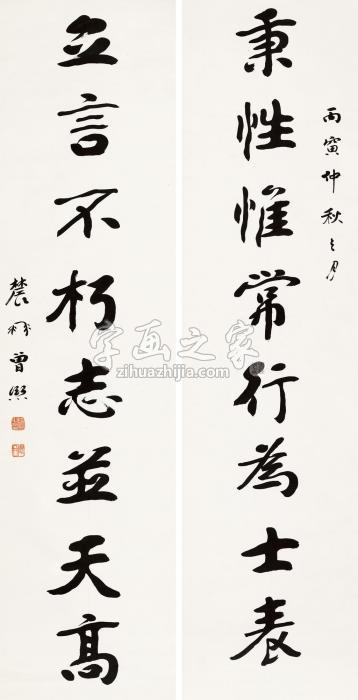 丙寅仲秋之月
秉性惟常行為士表
立言不朽志並天高
農髯曾熙
字画之家
zihuazhijia.com